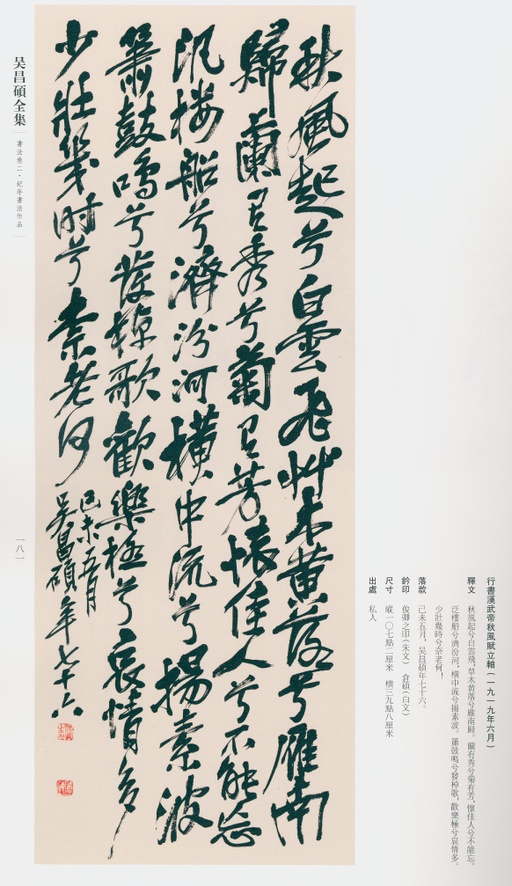 秋風起兮白雲飛艸木黄落兮雁南
歸蘭有秀兮菊有芳懷佳人兮不能忘
汎楼船兮濟汾河横中流兮揚素波
簫鼓鳴兮發棹歌歡樂極兮哀情多
少壯幾时兮柰老何
己未五月
吴昌碩年七十六
行書漢武帝秋風賦立軸(一九一九年六月)
釋文 秋風起兮白雲飛,草木黄落兮雁南歸。蘭有秀兮菊有芳,懷佳人兮不能忘。
泛樓船兮濟汾河,横中流兮揚素波。簫鼓鳴兮發棹歌,歡樂極兮哀情多。
少壯幾時兮奈老何!
落款 己未五月,吴昌碩年七十六。
鈐印 俊卿之印(朱文) 倉碩(白文)
尺寸 縱一〇七點二厘米 横三九點八厘米
出處 私人
吴昌碩全集
書法卷二·紀年書法作品
一八一